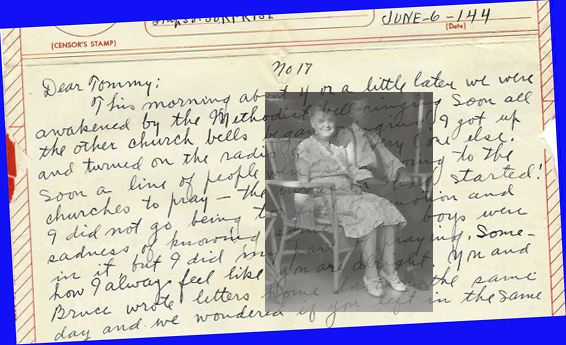 SURPRISE
JUNE-6-144
(CENSOR'S STAMP)
(Date)
No 17
Dear Tommy:
This morning about 4 or a little later we were
awakened by the Methodist bell ringing. Soon all
the other church bells began ringing. I got up
and turned on the radio else.
Soon a line of people were going to the
churches to pray — the started!
I did not go, being emotion and
sadness of knowing boys were
in it but I did my praying. Some-
how I always feel like you are alright. You and
Bruce wrote letters home the same
day and we wondered if you left in the same